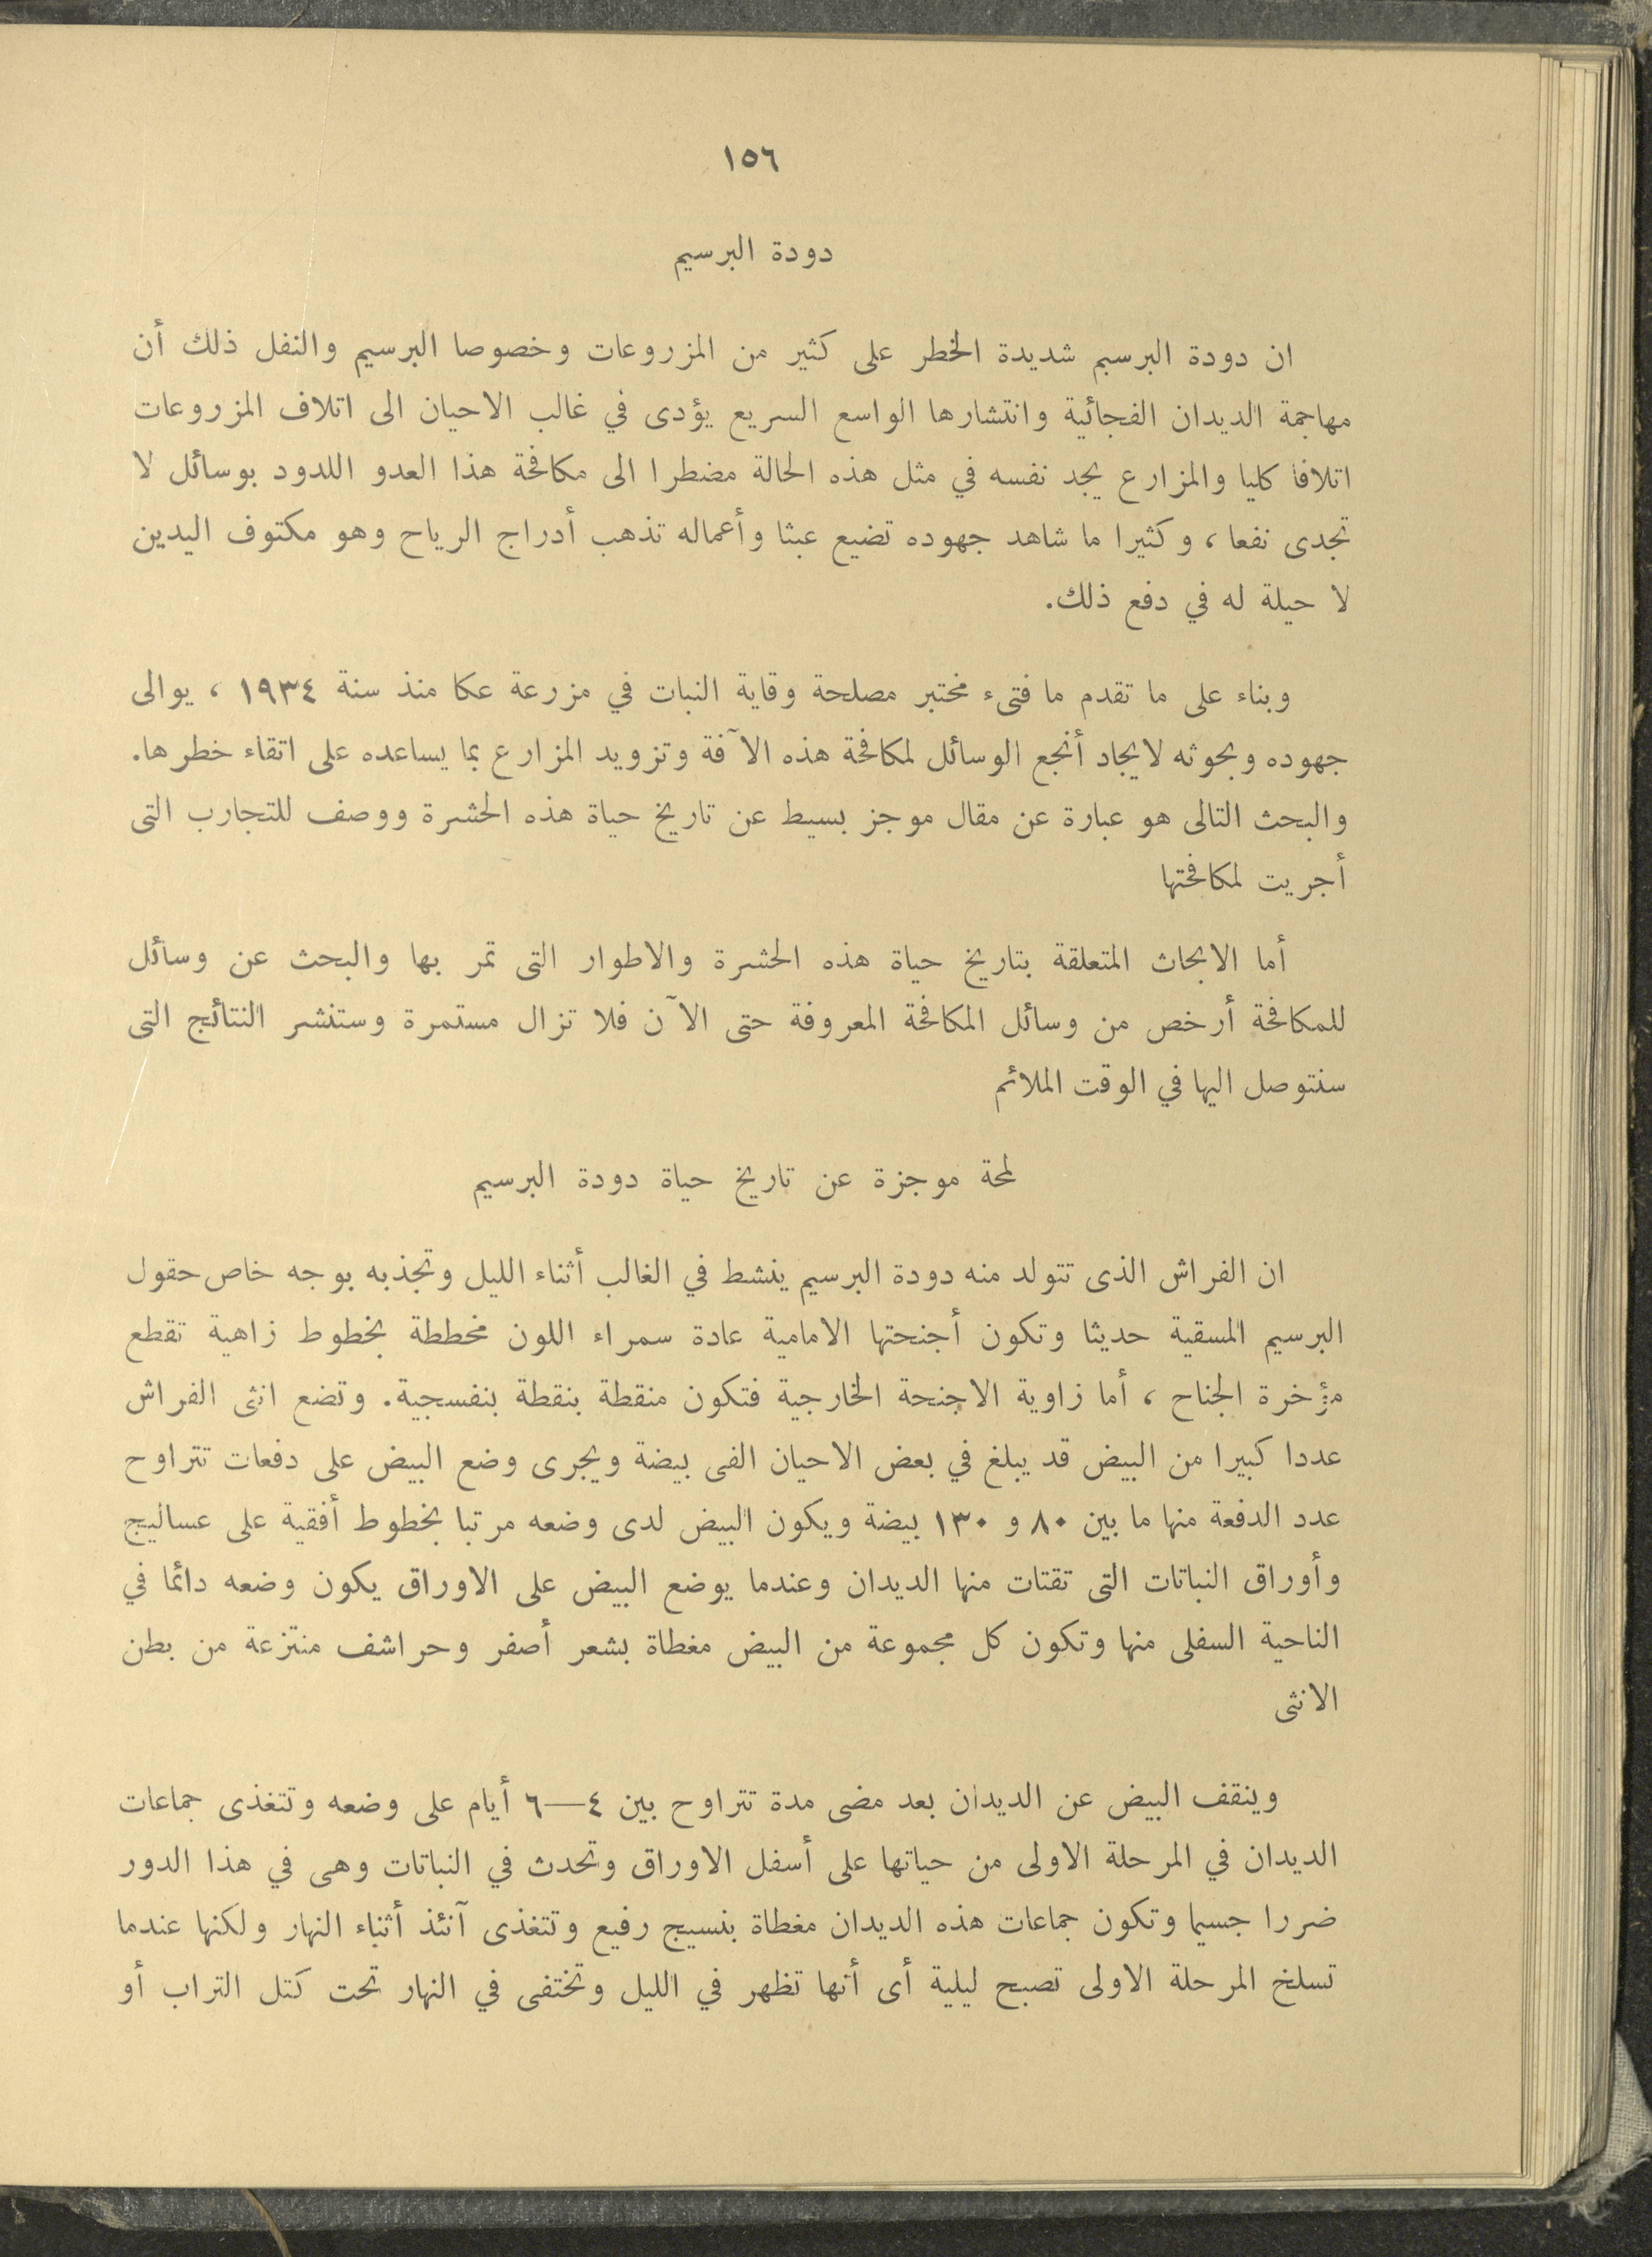 ١٥٦
دودة البرسيم
ان دودة البرسيم شديدة الخطر على كثير من المزروعات وخصوصا البرسيم والنفل ذلك أن
مهاجمة الديدان الفجائية وانتشارها الواسع السريع يؤدى في غالب الاحيان الى اتلاف المزروعات
اتلافا كليا والمزارع يجد نفسه في مثل هذه الحالة مضطرا الى مكافحة هذا العدو اللدود بوسائل لا
تجدى نفعا ، وكثيرا ما شاهد جهوده تضيع عبثا وأعماله تذهب أدراج الرياح وهو مكتوف اليدين
لا حيلة له في دفع ذلك.
وبناء على ما تقدم ما فتىء مختبر مصلحة وقاية النبات في مزرعة عكا منذ سنة ١٩٣٤ ، يوالى
جهوده وبحوثه لايجاد أنجع الوسائل لمكافحة هذه الآفة وتزويد المزارع بما يساعده على اتقاء خطرها.
والبحث التالى هو عبارة عن مقال موجز بسيط عن تاريخ حياة هذه الحشرة ووصف للتجارب التى
أجريت لمكافحتها
أما الابحاث المتعلقة بتاريخ حياة هذه الحشرة والاطوار التى تمر بها والبحث عن وسائل
للمكافحة أرخص من وسائل المكافحة المعروفة حتى الآن فلا تزال مستمرة وستنشر النتائج التى
سنتوصل اليها في الوقت الملائم
لمحة موجزة عن تاريخ حياة دودة البرسيم
ان الفراش الذى تتولد منه دودة البرسيم ينشط في الغالب أثناء الليل وتجذبه بوجه خاص حقول
البرسيم المسقية حديثا وتكون أجنحتها الامامية عادة سمراء اللون مخططة بخطوط زاهية تقطع
مؤخرة الجناح ، أما زاوية الاجنحة الخارجية فتكون منقطة بنقطة بنفسجية. وتضع انثى الفراش
عددا كبيرا من البيض قد يبلغ في بعض الاحيان الفى بيضة ويجرى وضع البيض على دفعات تتراوح
عدد الدفعة منها ما بين ٨٠ و ١٣٠ بيضة ويكون البيض لدى وضعه مرتبا بخطوط أفقية على عساليج
وأوراق النباتات التى تقتات منها الديدان وعندما يوضع البيض على الاوراق يكون وضعه دائما في
الناحية السفلى منها وتكون كل مجموعة من البيض مغطاة بشعر أصفر وحراشف منتزعة من بطن
الانثى
وينقف البيض عن الديدان بعد مضى مدة تتراوح بين ٤—٦ أيام على وضعه وتتغذى جماعات
الديدان في المرحلة الاولى من حياتها على أسفل الاوراق وتحدث في النباتات وهى في هذا الدور
ضررا جسيما وتكون جماعات هذه الديدان مغطاة بنسيج رفيع وتتغذى آنئذ أثناء النهار ولكنها عندما
تسلخ المرحلة الاولى تصبح ليلية أى أنها تظهر في الليل وتختفى في النهار تحت كتل التراب أو